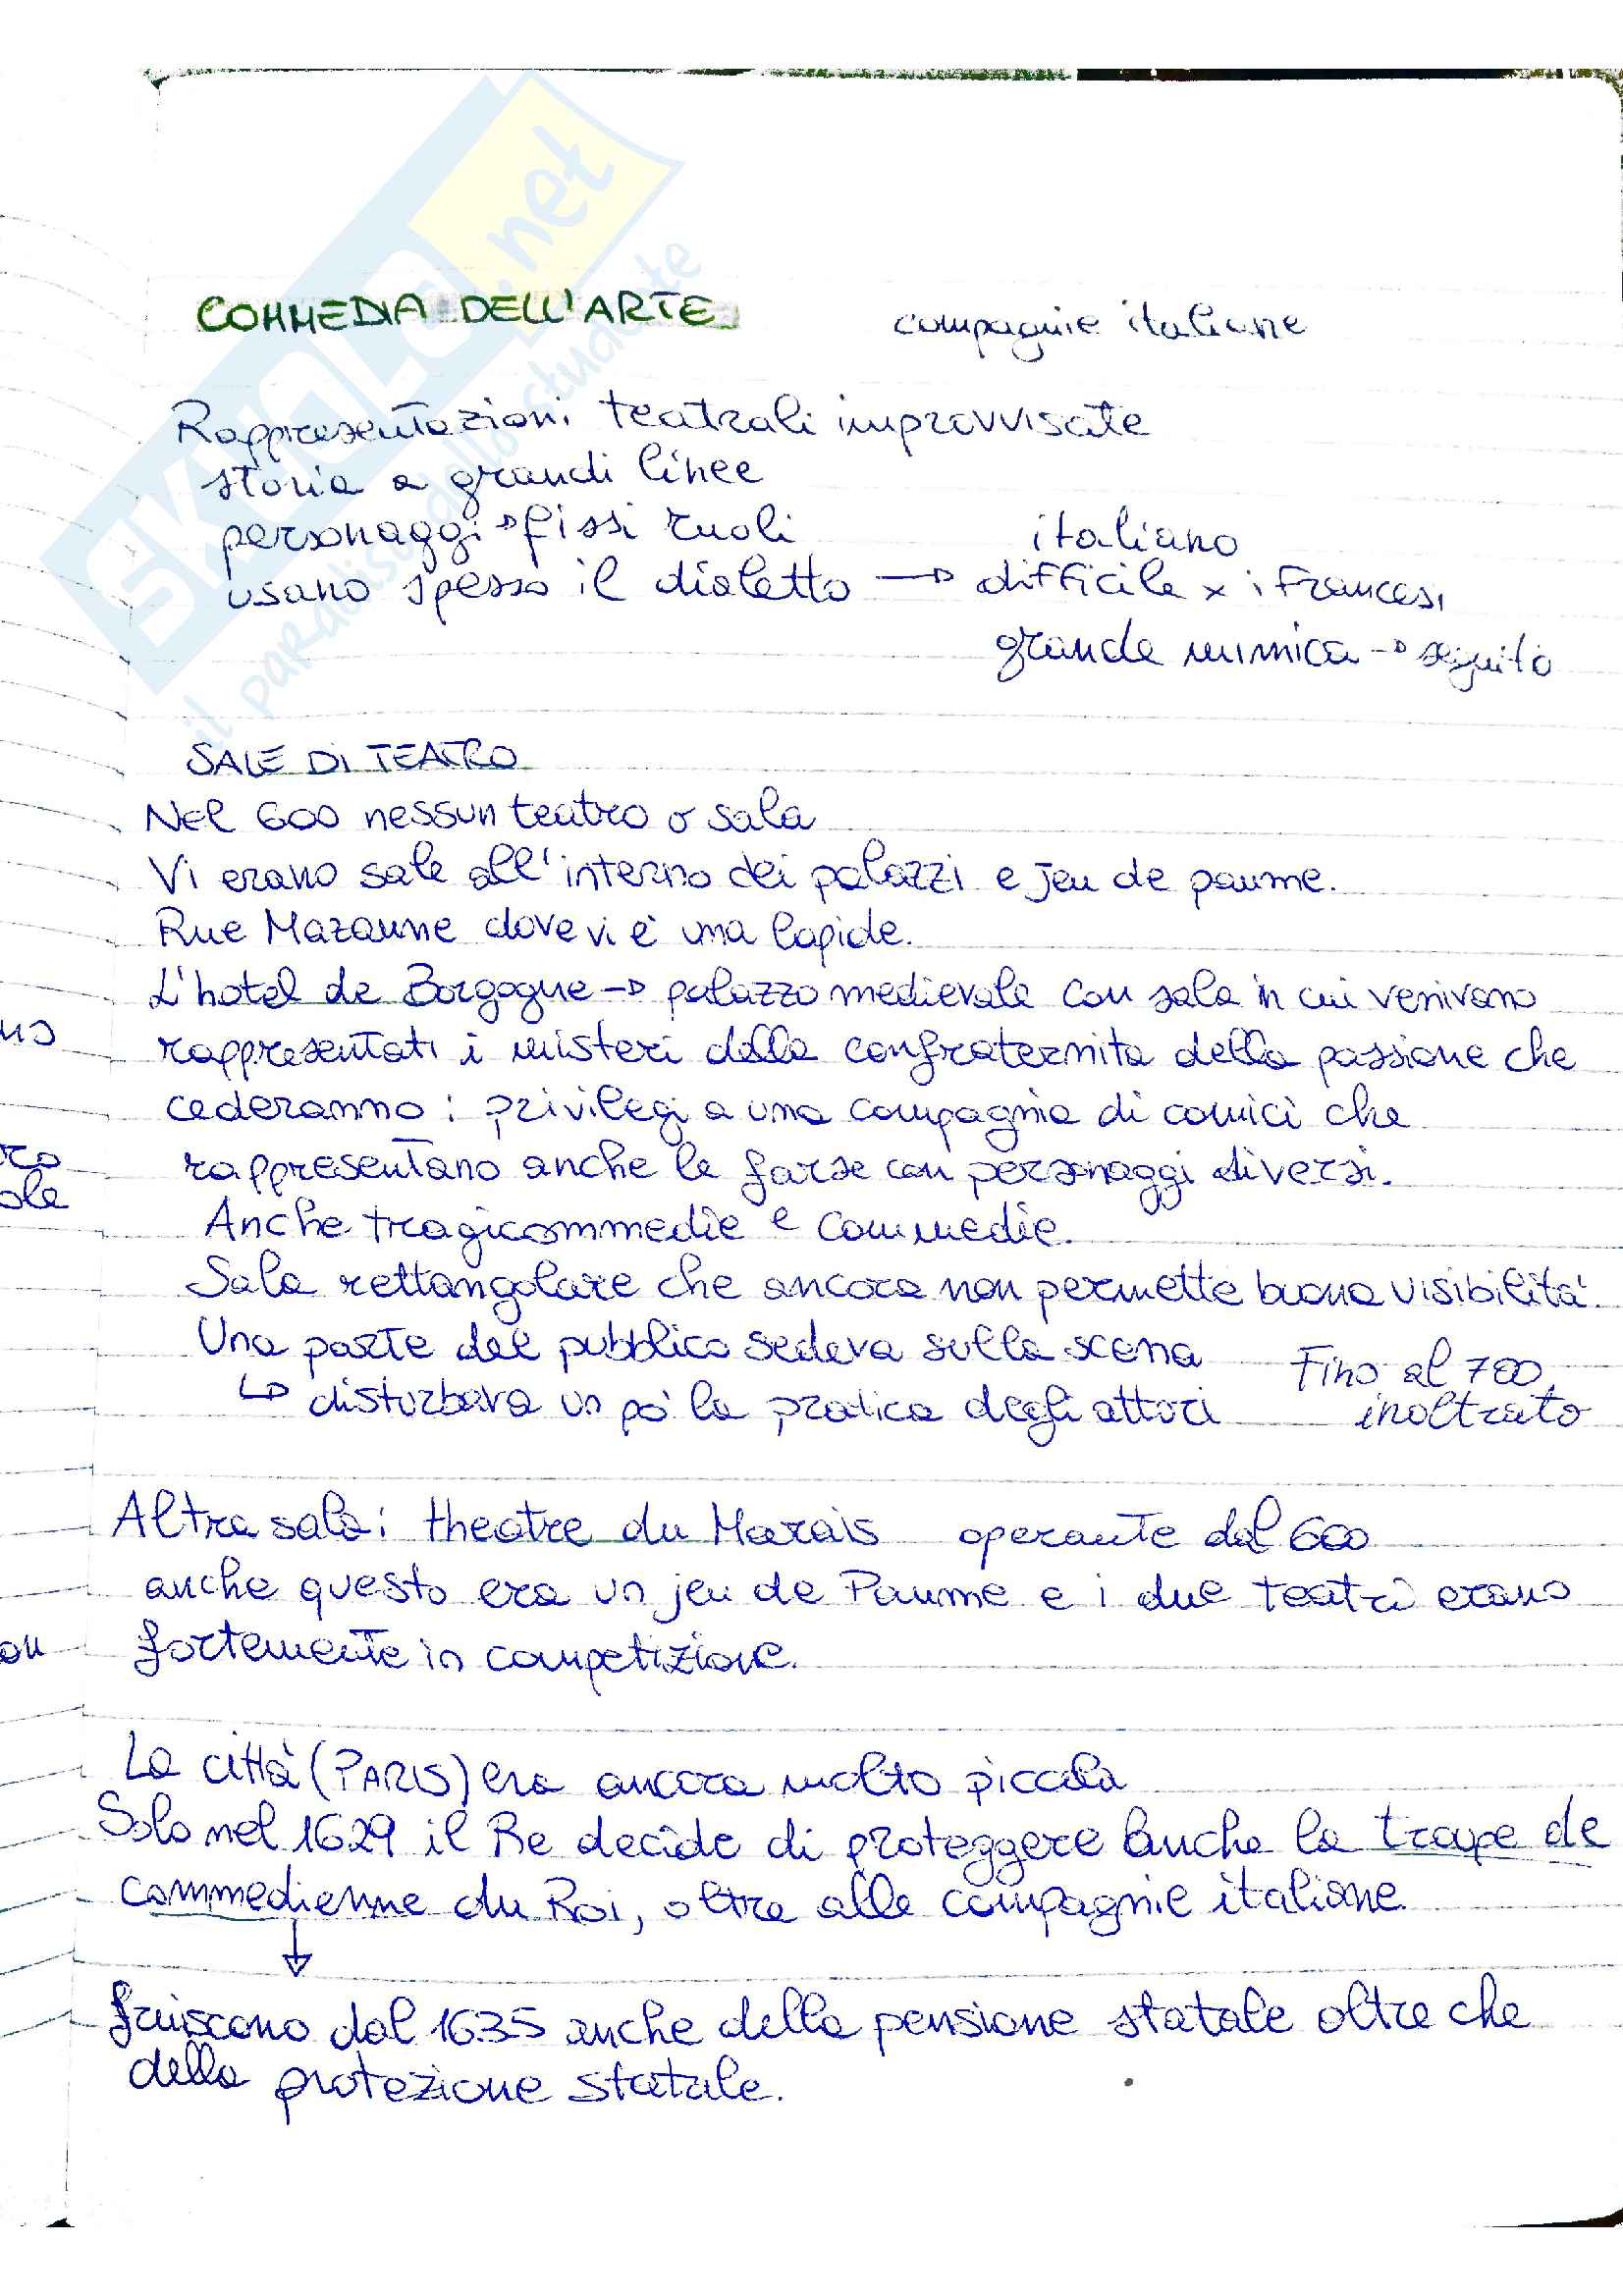 COMMEDIA DELL'ARTE compagnie italiane
Rappresentazioni teatrali improvvisate
storia a grandi linee
personaggi → fissi ruoli italiano
usano spesso il dialetto → difficile x i francesi
grande mimica → seguito
SALE DI TEATRO
Nel 600 nessun teatro o sala
Vi erano sale all'interno dei palazzi e jeu de paume.
Rue Mazarine dove vi è una lapide.
L'hotel de Borgogne → palazzo medievale con sala in cui venivano
rappresentati i misteri della confraternita della passione che
cederanno i privilegi a una compagnia di comici che
rappresentano anche le farse con personaggi diversi.
Anche tragicommedie e commedie.
Sala rettangolare che ancora non permette buona visibilità.
Una parte del pubblico sedeva sulla scena Fino al 700
↳ disturbava un pò la pratica degli attori inoltrato
Altra sala: theatre du Marais operante dal 600
anche questo era un jeu de Paume e i due teatri erano
fortemente in competizione.
La città (PARIS) era ancora molto piccola
Solo nel 1629 il Re decide di proteggere anche la troupe de
commedienne du Roi, oltre alle compagnie italiane.
↓
fruiscono dal 1635 anche della pensione statale oltre che
della protezione statale.
SKUOLA.net
il paradiso dello studente